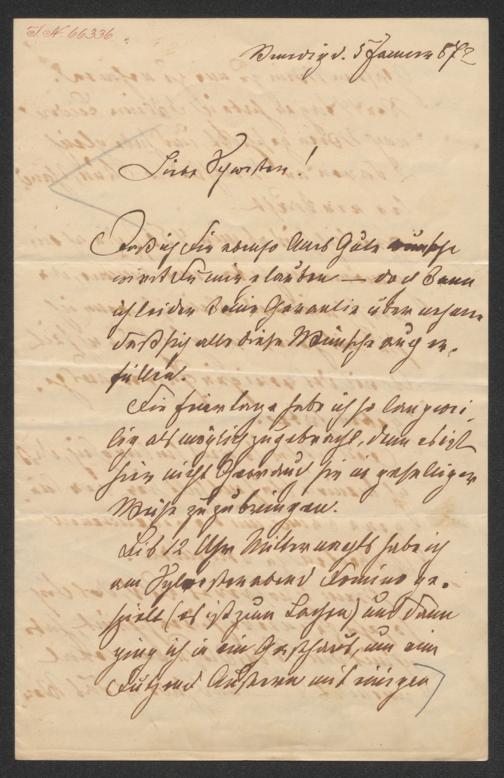 I. N. 66336
Venedig d. 5 Jänner 872
Liebe Schwester!
Daß ich Dir ebenso alles Gute wünsche
wirst Du mir glauben — doch kann
ich leider keine Garantie übernehmen
daß sich alle diese Wünsche auch er-
füllen.
Die Feiertage habe ich so langwei-
lig als möglich zugebracht, denn es ist
hier nicht Brauch sie in geselliger
Weise zuzubringen.
Bis 12 Uhr Mitternachts habe ich
am Sylvesterabend Domino ge-
spielt (es ist zum Lachen) und dann
ging ich in ein Gasthaus, um ein
Dutzend Austern mit einigen